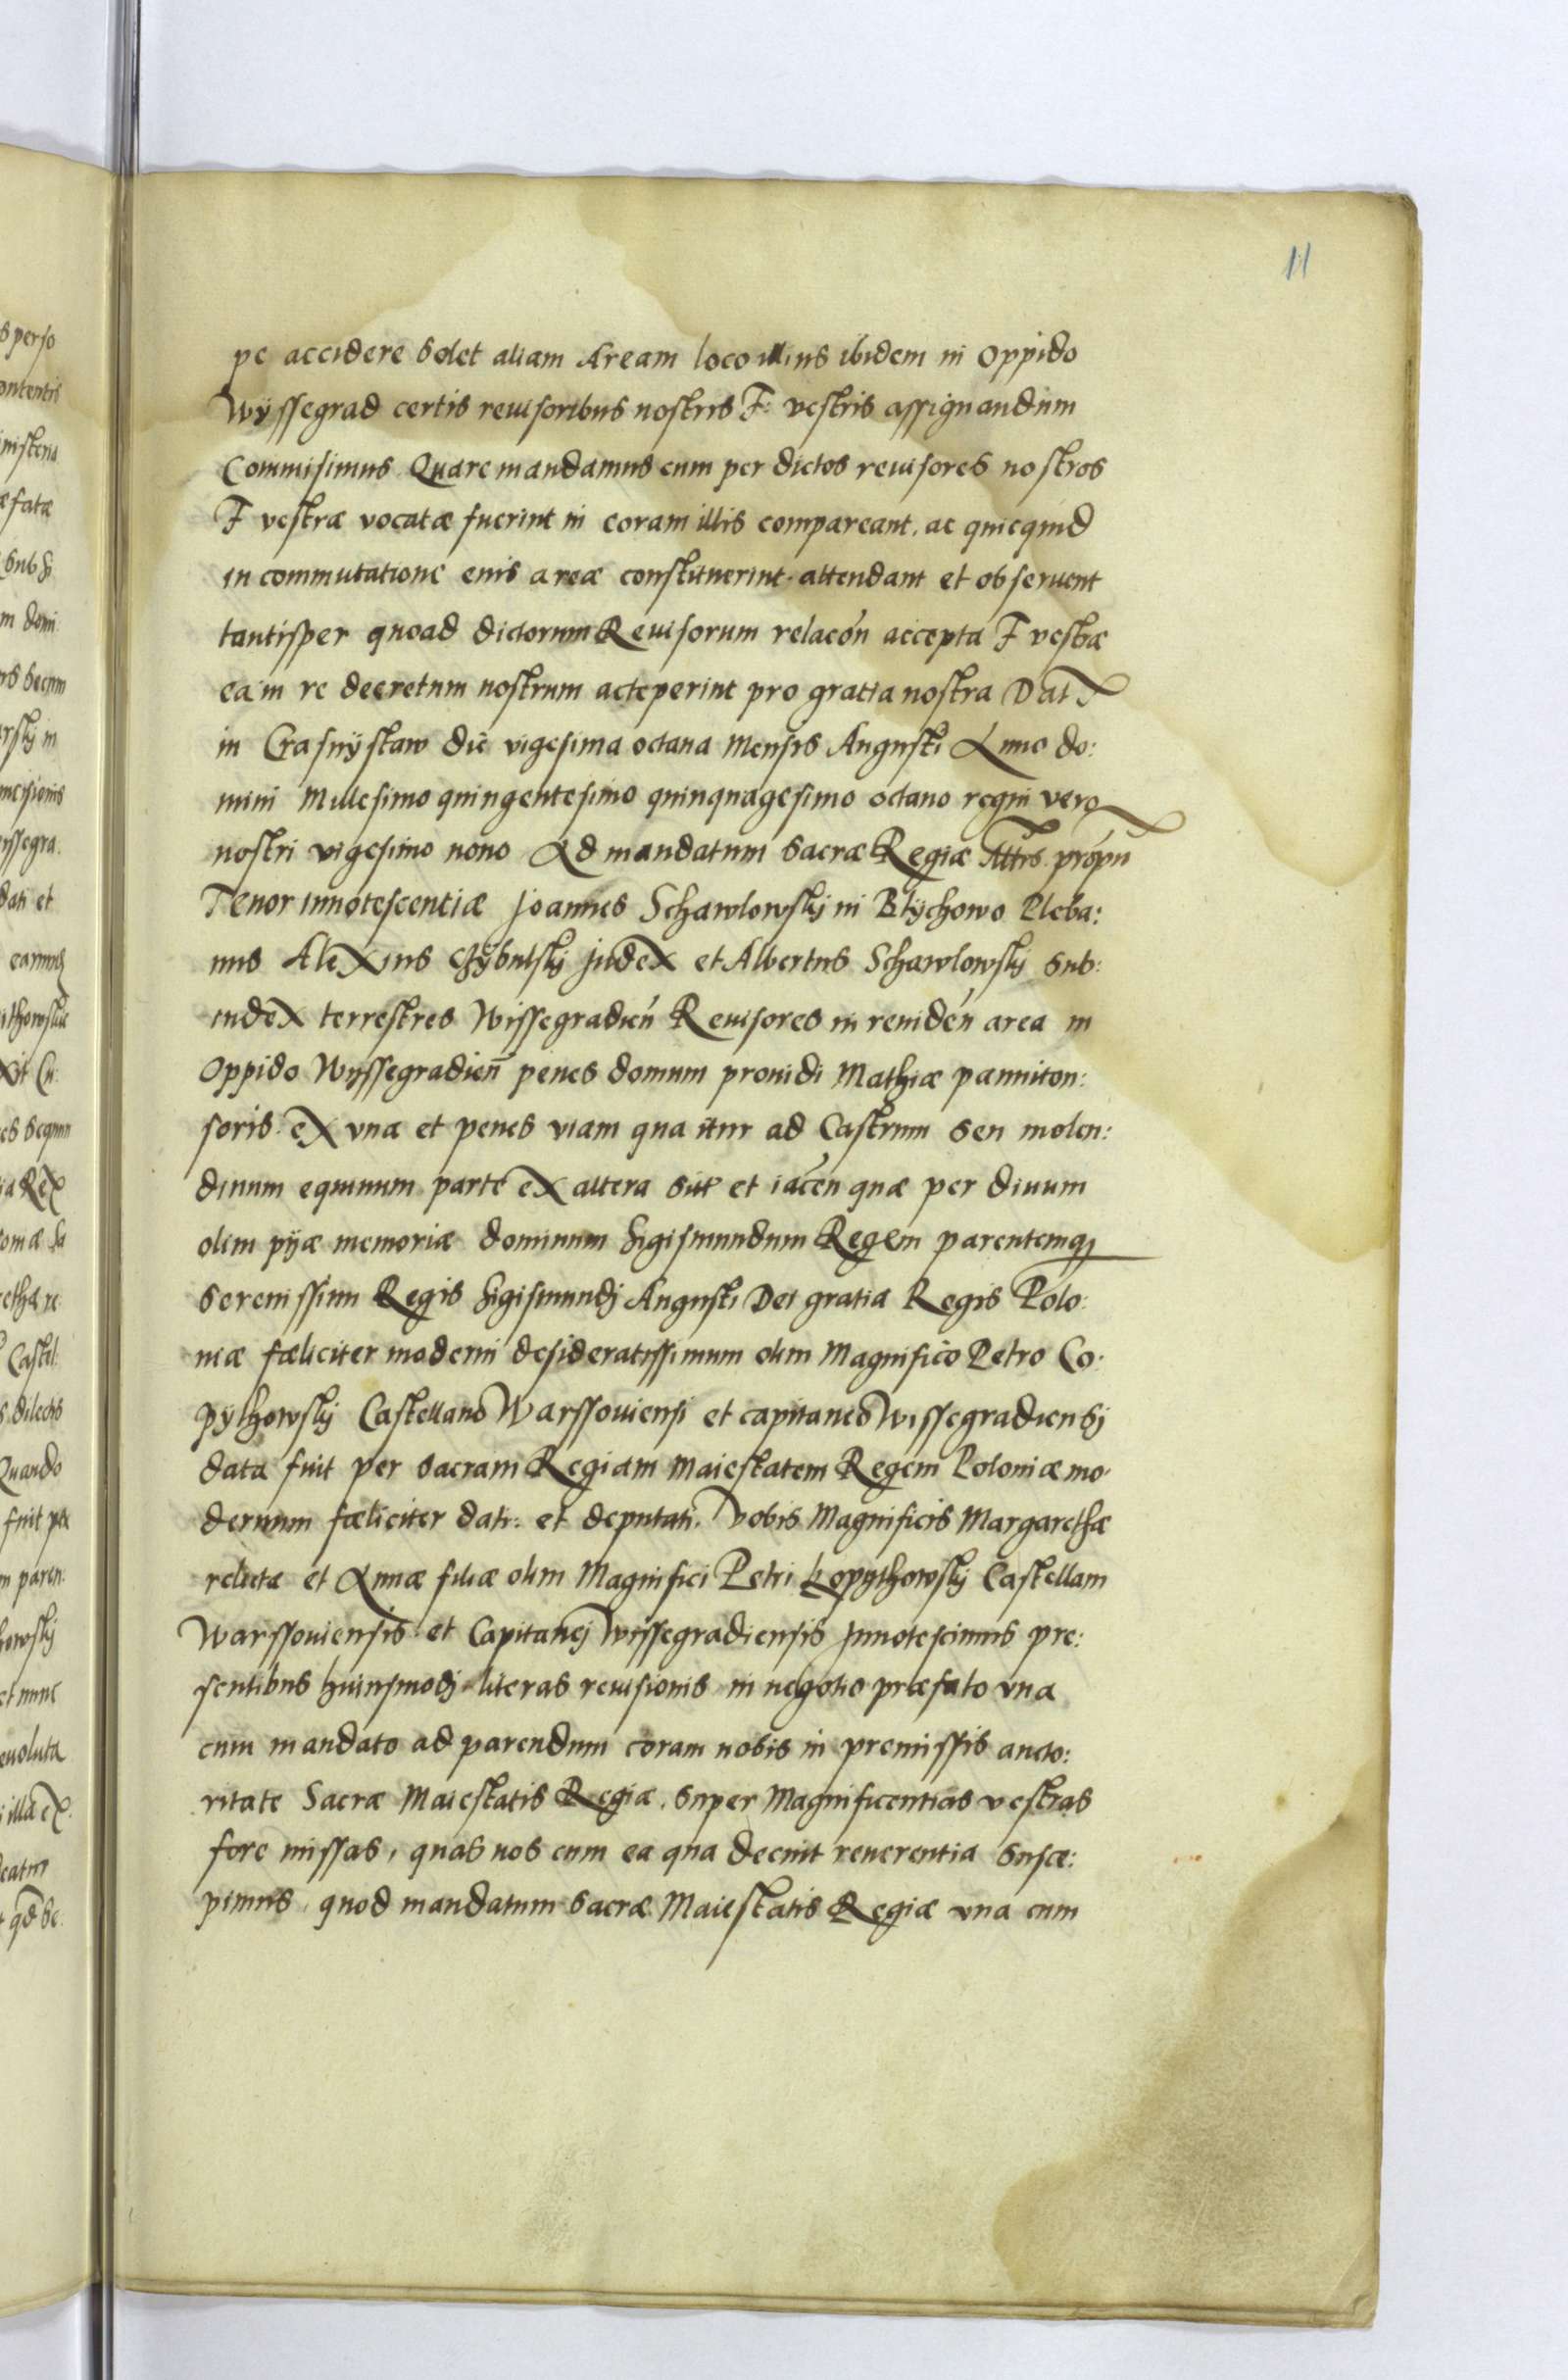 11
pe accidere solet aliam Aream loco illius ibidem in Oppido
Wÿssegrad certis reuisoribus nostris F: vestris assignandum
Commisimus Quare mandamus cum per dictos reuisores nostros
F vestræ vocatæ fuerint in coram illis compareant, ac quicquid
in commutatione eius areæ constituerint attendant et obseruent
tantisper quoad dictorum Reuisorum relacón accepta F vestræ
ea in re decretum nostrum acceperint pro gratia nostra Dat
in Crasnÿstaw die vigesima octaua Mensis Augusti Anno do:
mini Millesimo quingentesimo quinquagesimo octauo regni vero
nostri vigesimo nono Ad mandatum Sacræ Regiæ Mttis própu
Tenor innotescentiæ Joannes Schawlowskj in Blÿchowo Pleba:
nus Alexius judex et Albertus Schawlowskj sub:
iudex terrestres Wissegradień Reuisores in reuidén area in
Oppido Wyssegradień penes domum prouidi Mathiæ panniton:
soris ex vna et penes viam qua itur ad Castrum seu molen:
dinum equinum parte ex altera sit et iacén quæ per diuum
olim pÿæ memoriæ dominum Sigismundum Regem parentemq;
serenissimi Regis Sigismundj Augusti Dei gratia Regis Polo:
niæ fœliciter moderni desideratissimum olim Magnifico Petro Co:
pÿthowskj Castellano Warssouiensi et capitaneo Wissegradiensj
data fuit per sacram Regiam Maiestatem Regem Poloniæ mo:
dernum fœliciter dati: et deputati. Vobis Magnificis Margarethæ
relictæ et Annæ filiæ olim Magnifici Petri Kopythowskj Castellani
Warssouiensis et Capitanej Wissegradiensis Innotescimus pre:
sentibus huiusmodj literas reuisionis in negotio præfato vna
cum mandato ad parendum coram nobis in premissis aucto:
ritate Sacræ Maiestatis Regiæ super Magnificentias vestras
fore missas, quas nos cum ea qua decuit reuerentia susce:
pimus, quod mandatum Sacræ Maiestatis Regiæ vna cum